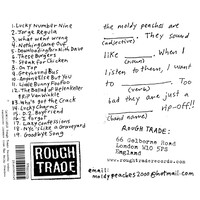 1. Lucky Number Nine
2. Jorge Regula
3. what went wrong
4. Nothing Came Out
5. Downloading Porn With Davo
6. These Burgers
7. Steak for Chicken
8. On Top
9. Greyhound Bus
10. Anyone Else But You
11. Little Bunny Foofoo
12. The Ballad of Helen Keller
& Rip Van Winkle
13. Who's got the Crack
14. Lucky Charms
15. D.2. Boyfriend
16. I Forgot
17. Lazy Confessions
18. NYC's Like a Graveyard
19. Goodbye Song
the moldy peaches are
. They sound
(adjective)
like . When I
(noun)
listen to them, I want
to . Too
(verb)
bad they are just a
rip-off!!
(band name)
ROUGH TRADE:
66 Golborne Road
London W10 5PS
England
www.roughtraderecords.com
email:
moldypeaches2000@hotmail.com
ROUGH
TRADE